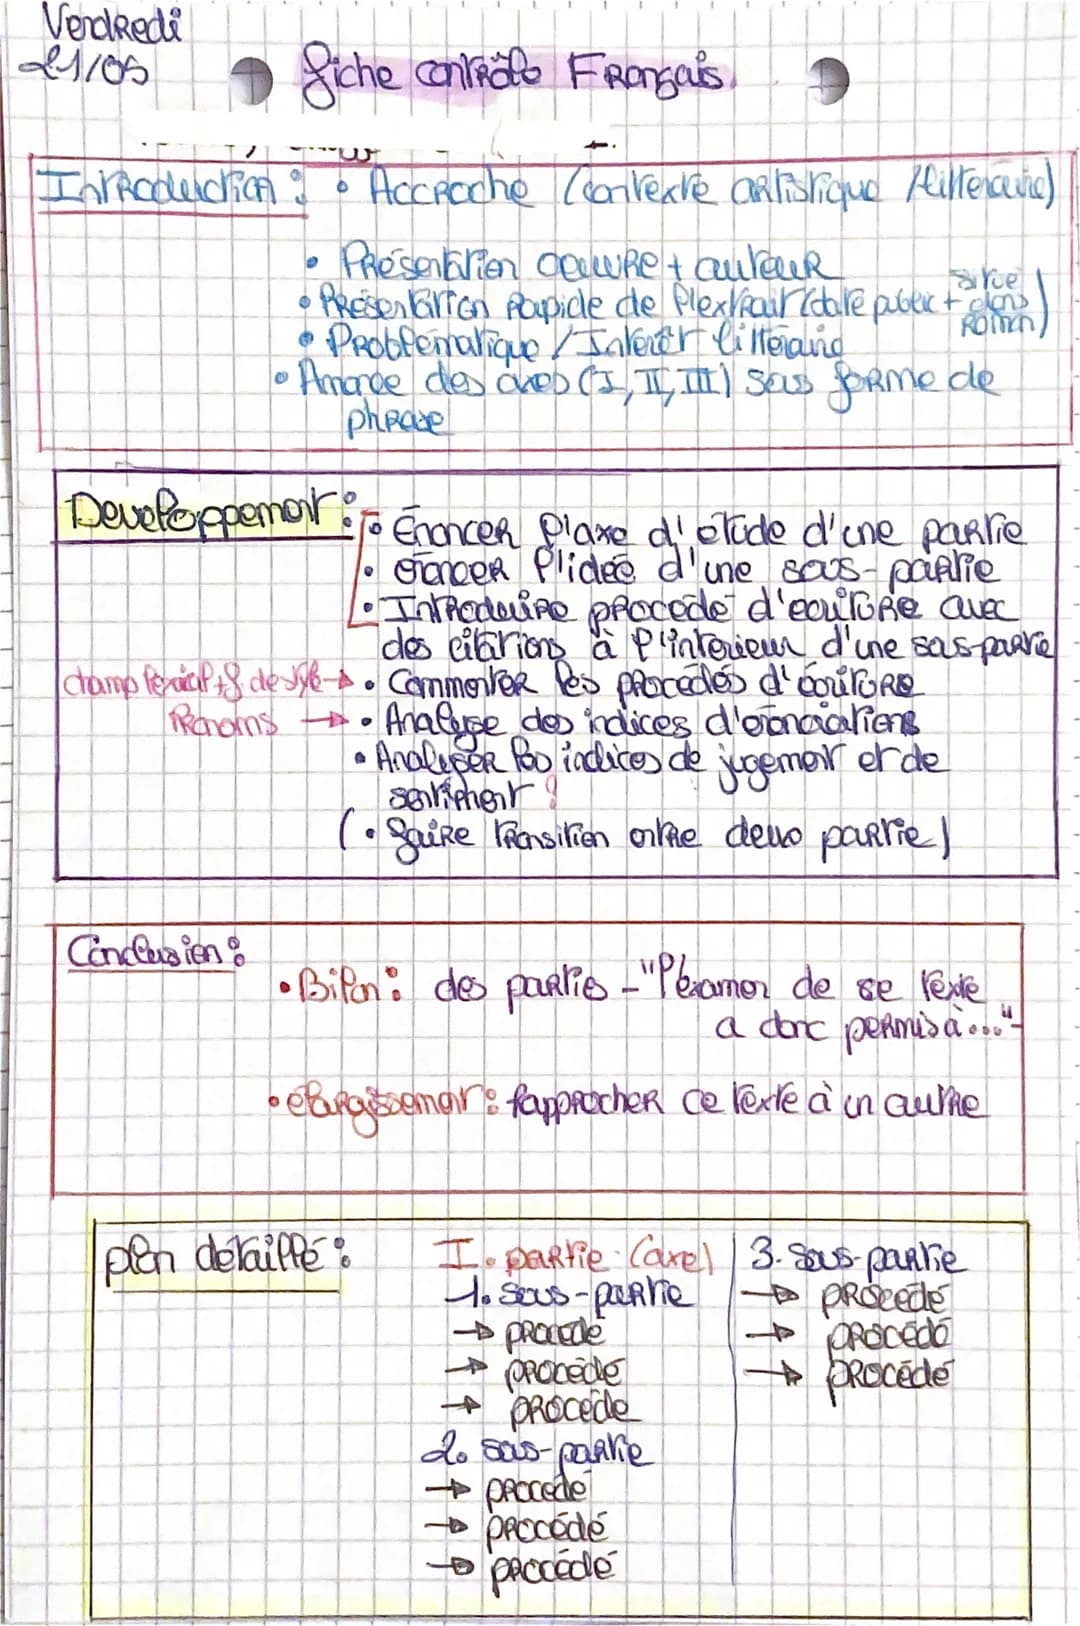 Vendredi
21/05
fiche contrôle Français
Introduction : • Accroche (contexte artistique / littéraire)
• Présentation oeuvre + auteur
• Présentation rapide de l'extrait (date public + situe dans roman)
• Problématique / Intérêt littéraire
• Annonce des axes (I, II, III) sous forme de
phrase
Developpement :
• Énoncer l'axe d'étude d'une partie
• énoncer l'idée d'une sous-partie
• Introduire procédé d'écriture avec
des citations à l'intérieur d'une sous-partie
champ lexical + f de style → • Commenter les procédés d'écriture
Pronoms → • Analyse des indices d'énonciations
• Analyser les indices de jugement et de
sentiment !
(• faire transition entre deux partie)
Conclusion :
• Bilan : des parties - "l'examen de se texte
a donc permis à ..." -
• élargissement : rapprocher ce texte à un autre
plan détaillé :
I. partie (axe)
1. sous-partie
→ procédé
→ procédé
→ procédé
2. sous-partie
→ procédé
→ procédé
→ procédé
3. sous-partie
→ procédé
→ procédé
→ procédé